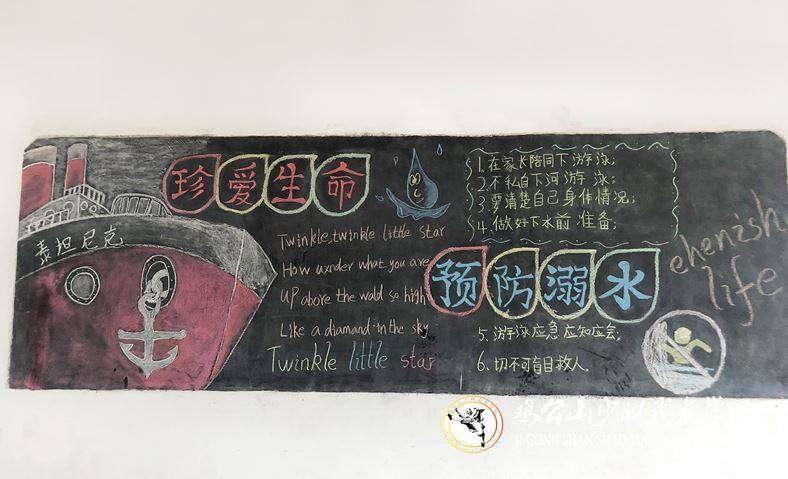 泰坦尼克
珍爱生命
Twinkle twinkle little star
How uxnder what you are
UP above the wald so high
Like a diamand in the sky
Twinkle little star
1.在家长陪同下游泳;
2.不私自下河游泳;
3.要清楚自己身体情况;
4.做好下水前准备;
预防溺水
5.游泳应急应知应会;
6.切不可盲目救人.
ehenish
life
JI GONG SHAN SHAOLIN